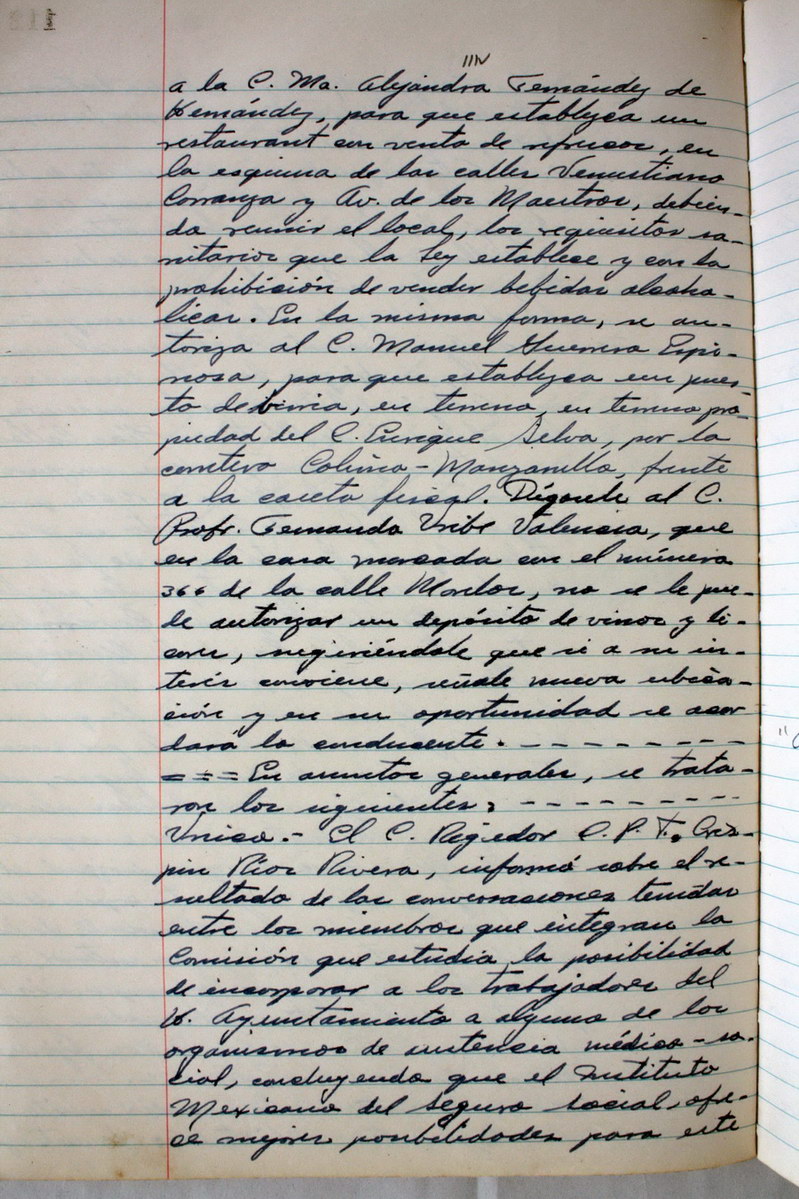 a la C. Ma. Alejandra Fernández de
Hernández, para que establezca un
restaurant con venta de refrescos, en
la esquina de las calles Venustiano
Carranza y Av. de los Maestros, debien-
do reunir el local, los requisitos sa-
nitarios que la Ley establece y con la
prohibición de vender bebidas alcoho-
licas. En la misma forma, se au-
toriza al C. Manuel Guerrero Espi-
nosa, para que establezca un pues-
to de birria, en terreno, en terreno pro-
piedad del C. Enrique Silva, por la
carretera Colima - Manzanillo, frente
a la caseta fiscal. Dígasele al C.
Profr. Fernando Uribe Valencia, que
en la casa marcada con el número
366 de la calle Morelos, no se le pue-
de autorizar un depósito de vinos y li-
cores, sugiriéndole que si a su in-
terés conviene, señale nueva ubica-
ción y en su oportunidad se acor
dará lo conducente. - - - - - - - -
= = = En asuntos generales, se trata-
ron los siguientes: - - - - - - - -
Unico.- El C. Regidor C.P.T. Cris-
pin Ríos Rivera, informó sobre el re-
sultado de las conversaciones tenidas
entre los miembros que integran la
Comisión que estudia la posibilidad
de incorporar a los trabajadores del
H. Ayuntamiento a alguno de los
organismos de asistencia médico - so-
cial, concluyendo que el Instituto
Mexicano del Seguro Social, ofre-
ce mejores posibilidades para este